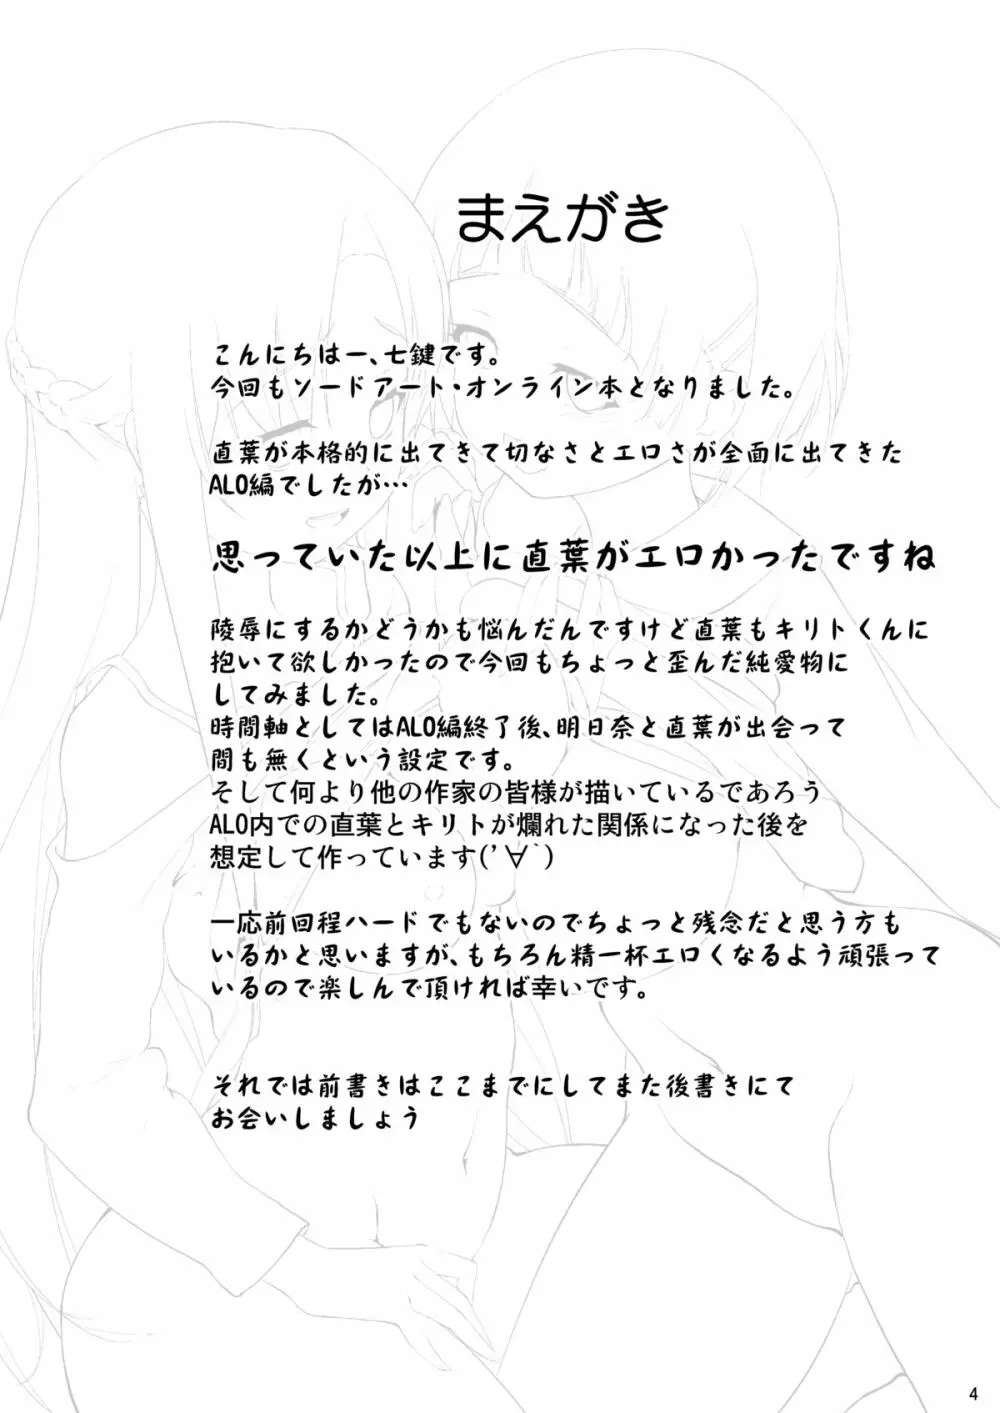 まえがき
こんにちはー、七鍵です。
今回もソードアート・オンライン本となりました。
直葉が本格的に出てきて切なさとエロさが全面に出てきた
ALO編でしたが…
思っていた以上に直葉がエロかったですね
陵辱にするかどうかも悩んだんですけど直葉もキリトくんに
抱いて欲しかったので今回もちょっと歪んだ純愛物に
してみました。
時間軸としてはALO編終了後、明日奈と直葉が出会って
間も無くという設定です。
そして何より他の作家の皆様が描いているであろう
ALO内での直葉とキリトが爛れた関係になった後を
想定して作っています(’∀｀)
一応前回程ハードでもないのでちょっと残念だと思う方も
いるかと思いますが、もちろん精一杯エロくなるよう頑張って
いるので楽しんで頂ければ幸いです。
それでは前書きはここまでにしてまた後書きにて
お会いしましょう
4